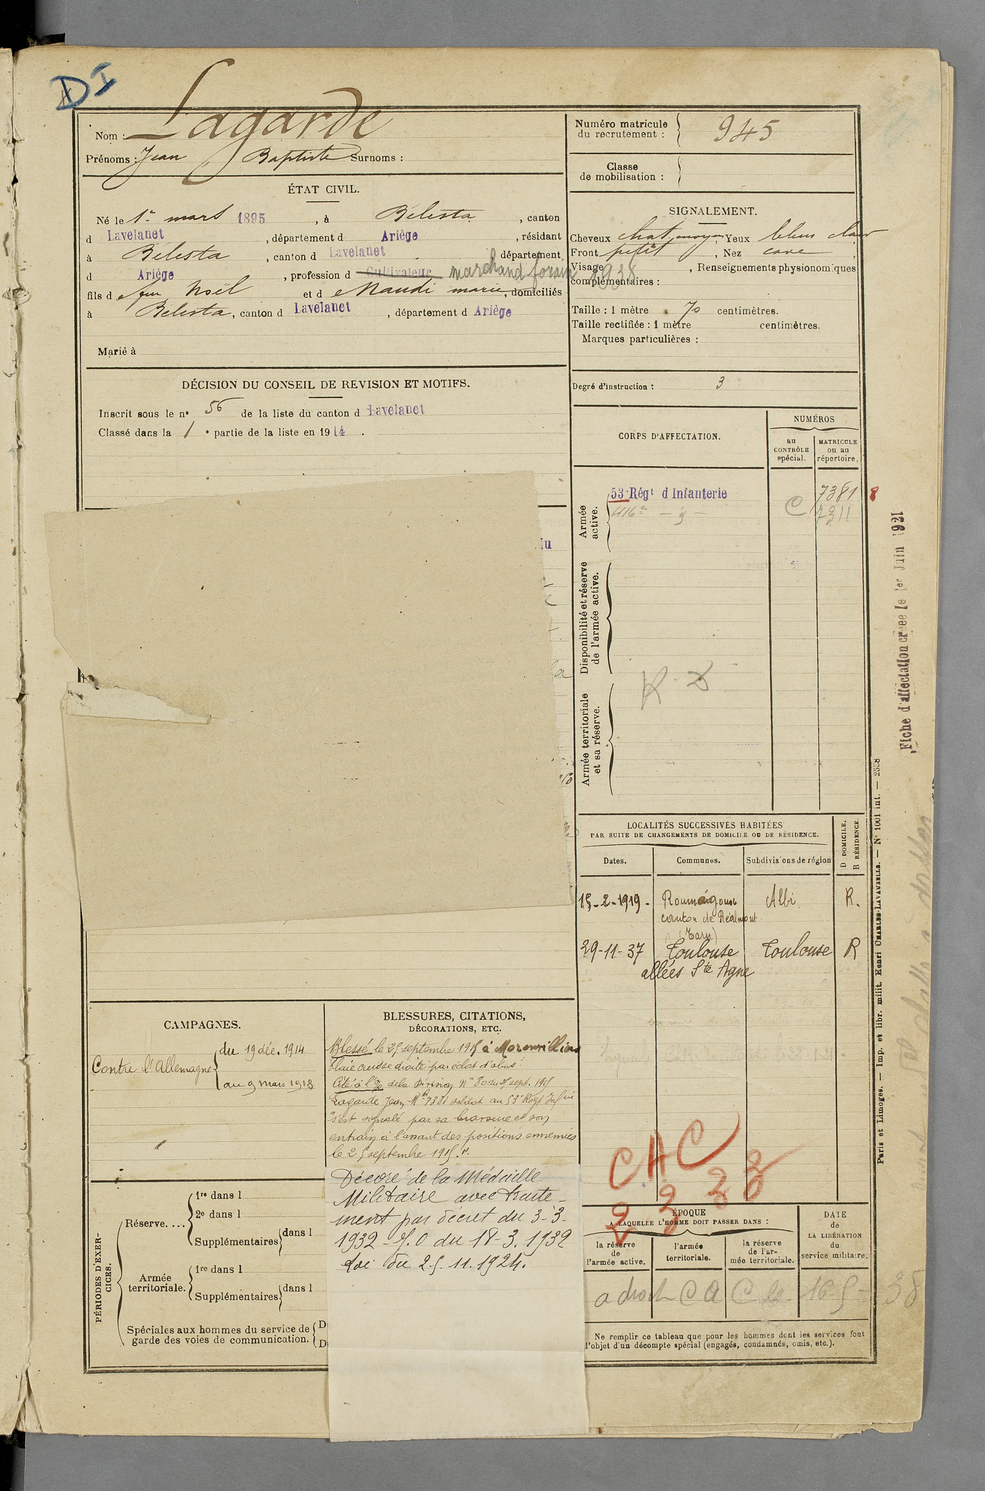 DI
Nom : Lagarde
Prénoms : Jean Baptiste Surnoms :
Numéro matricule
du recrutement : 945
Classe
de mobilisation :
ÉTAT CIVIL.
Né le 1er mars 1895, à Bélesta, canton
d Lavelanet, département d Ariège, résidant
à Bélesta, canton d Lavelanet, département
d Ariège, profession d Cultivateur marchand forain 1938
fils d e feu Noël et d e Naudi marie, domiciliés
à Bélesta, canton d Lavelanet, département d Ariège
Marié à
SIGNALEMENT.
Cheveux chat. moyen, Yeux bleus clair
Front petit, Nez cave
Visage , Renseignements physionomiques
complémentaires :
Taille : 1 mètre 70 centimètres.
Taille rectifiée : 1 mètre centimètres.
Marques particulières :
Degré d'instruction : 3
DÉCISION DU CONSEIL DE REVISION ET MOTIFS.
Inscrit sous le n° 56 de la liste du canton d Lavelanet
Classé dans la 1 e partie de la liste en 1914.
CORPS D'AFFECTATION.
NUMÉROS
AU CONTRÔLE spécial.
MATRICULE ou au répertoire.
Armée active.
53e Régt d'Infanterie 7381 8
416e — y — C 2311
Disponibilité et réserve de l'armée active.
Armée territoriale et sa réserve.
LOCALITÉS SUCCESSIVES HABITÉES
PAR SUITE DE CHANGEMENTS DE DOMICILE OU DE RÉSIDENCE.
Dates. Communes. Subdivisions de région
D DOMICILE.
R RÉSIDENCE
15-2-1919. Roumégoux Albi R.
canton de Réalmont
(Tarn)
29-11-37 Toulouse Toulouse R
allées Ste Agne
CAMPAGNES.
Contre l'Allemagne
du 19 déc. 1914
au 9 mars 1918
BLESSURES, CITATIONS,
DÉCORATIONS, ETC.
Blessé le 25 septembre 1915 à Mourmillon
Plaie cuisse droite par éclat d'obus
Lagarde Jean Mle 7381 soldat au 53e Régt Infrie
s'est signalé par sa bravoure et son
entrain à l'assaut des positions ennemies
le 25 septembre 1915.
Décoré de la Médaille
Militaire avec traite-
ment par décret du 3-3-
1932 - J.O du 18-3.1932
Loi du 25.11.1924.
CAC
PÉRIODES D'EXERCICES.
Réserve....
1re dans l
2e dans l
Supplémentaires dans l
Armée territoriale.
1re dans l
Supplémentaires dans l
Spéciales aux hommes du service de
garde des voies de communication.
ÉPOQUE
A LAQUELLE L'HOMME DOIT PASSER DANS :
la réserve de l'armée active.
l'armée territoriale.
la réserve de l'armée territoriale.
DATE DE LA LIBÉRATION du service militaire.
a droit CA C le 16-5-38
Ne remplir ce tableau que pour les hommes dont les services font
l'objet d'un décompte spécial (engagés, condamnés, omis, etc.).
Fiche d'affectation créée le 1er Juin 1921
Paris et Limoges. — Imp. et libr. milit. Henri CHARLES-LAVAUZELLE. — N° 1001 int. — 2538